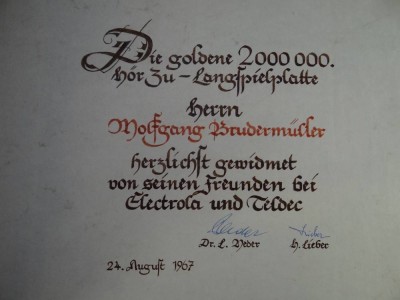 Die goldene 2000 000.
Hör Zu - Langspielplatte
Herrn
Wolfgang Brudermüller
herzlichst gewidmet
von seinen Freunden bei
Electrola und Teldec
Dr. L. Veder H. Lieber
24. August 1967